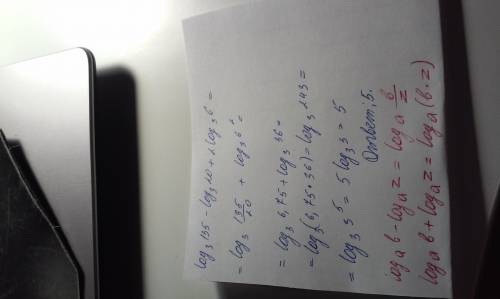 log₃135 - log₃20 + 2log₃6 =
= log₃ 135/20 + log₃6² =
= log₃ 6,75 + log₃ 36 =
= log₃(6,75 * 36) = log₃ 243 =
= log₃ 3⁵ = 5 log₃3 = 5
Ответ: 5.
logₐ b - logₐ z = logₐ b/z
logₐ b + logₐ z = logₐ(b·z)